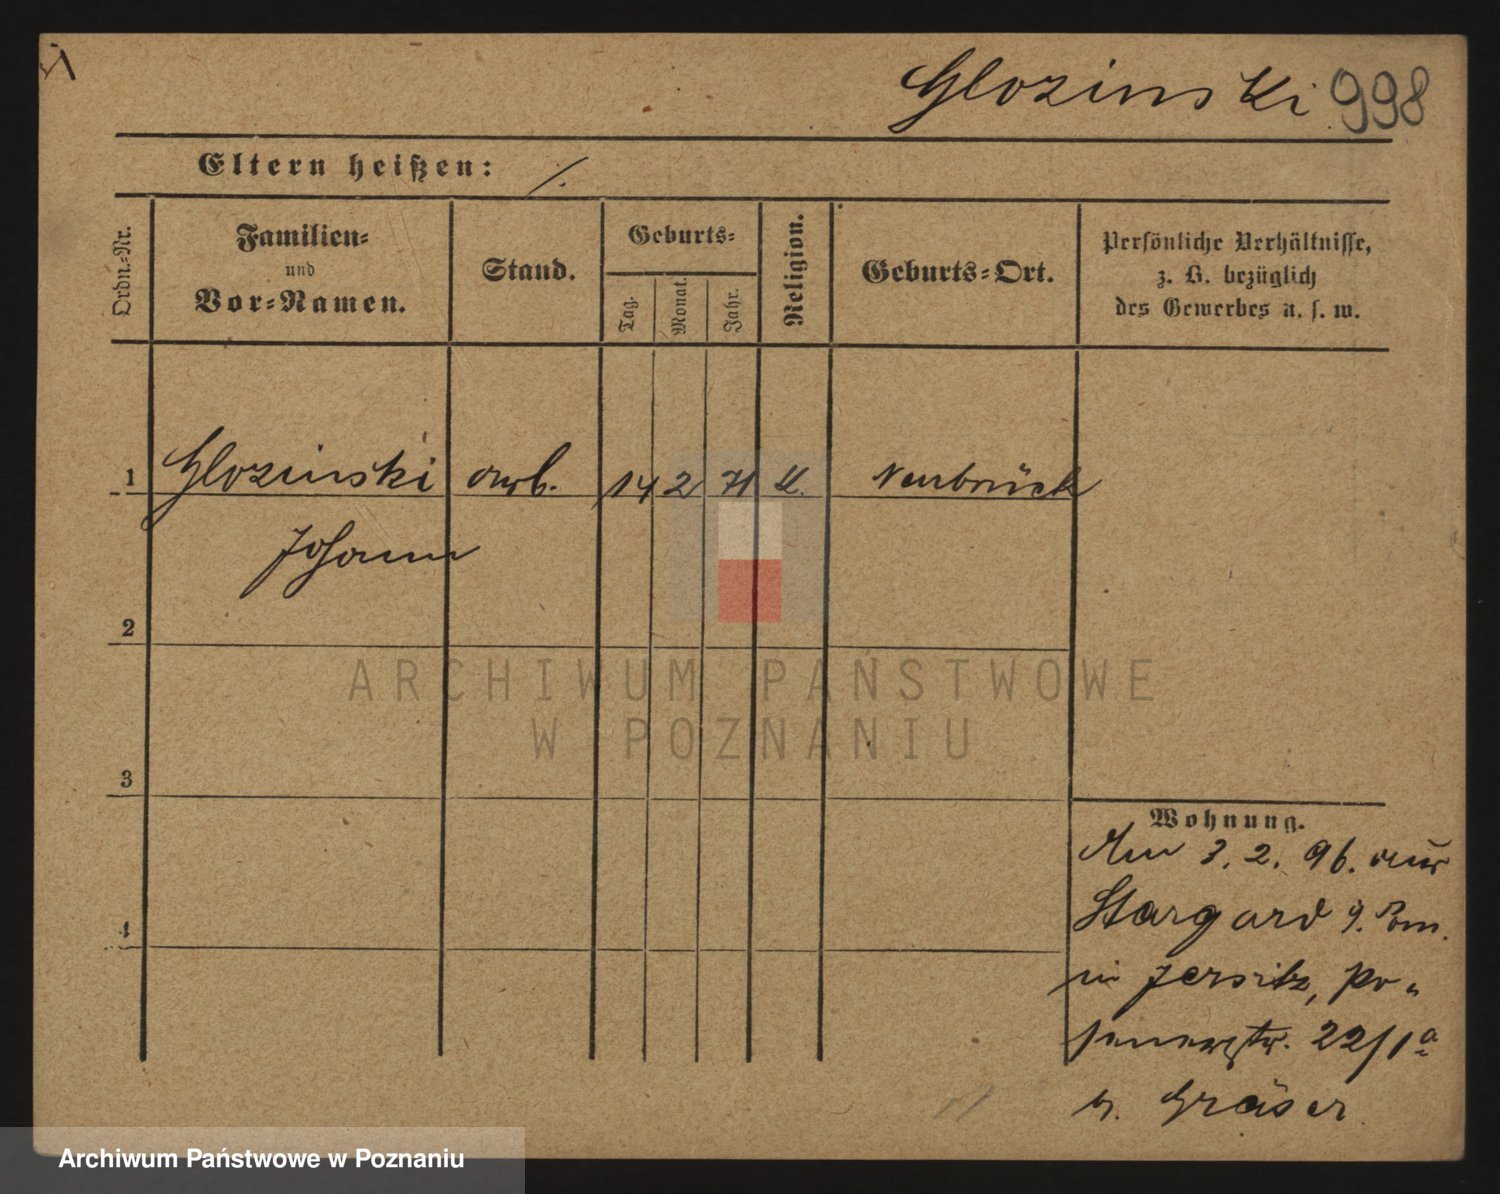 Glozinski 998
Eltern heißen: ./.
Ordn.-Nr.
Familien-
und
Vor-Namen.
Stand.
Geburts-
Tag.
Monat.
Jahr.
Religion.
Geburts-Ort.
Persönliche Verhältnisse,
z. B. bezüglich
des Gewerbes u. s. w.
1 Glozinski arb. 14 2 71 K. Neubrück
Johann
2
ARCHIWUM PAŃSTWOWE
W POZNANIU
3
4
Wohnung.
Am 3. 2. 96. aus
Stargard Pom.
in Jersitz, Po-
senerstr. 22/1a
b. Gräser
Archiwum Państwowe w Poznaniu